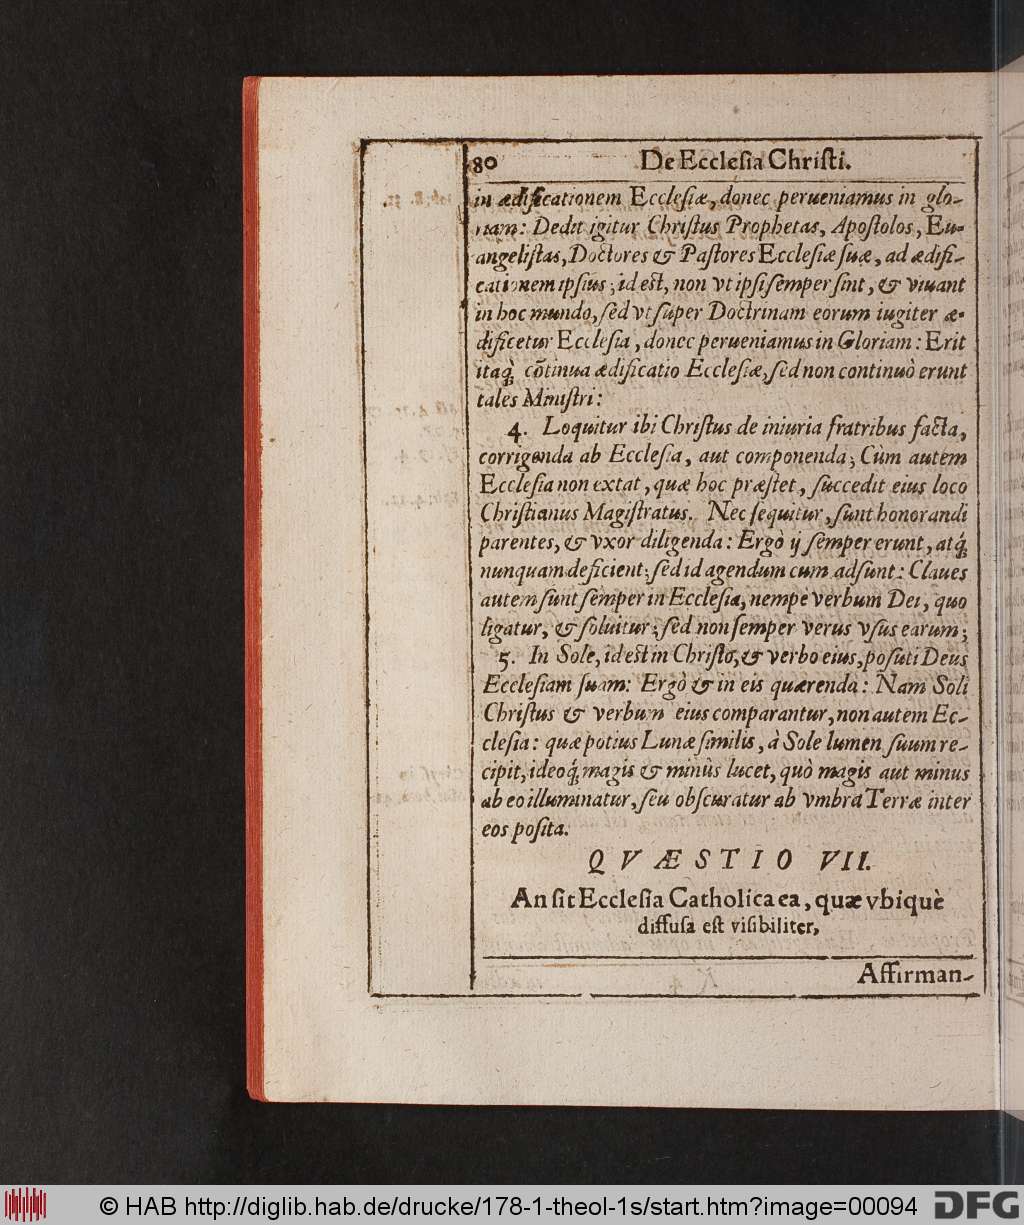 80 De Ecclesia Christi.
in ædificationem Ecclesiæ, donec perueniamus in glo-
riam: Dedit igitur Christus Prophetas, Apostolos, Eu-
angelistas, Doctores & Pastores Ecclesiæ suæ, ad ædifi-
cationem ipsius; id est, non vt ipsi semper sint, & viuant
in hoc mundo, sed vt super Doctrinam eorum iugiter æ-
dificetur Ecclesia, donec perueniamus in Gloriam: Erit
itaq; cõtinua ædificatio Ecclesiæ, sed non continuò erunt
tales Ministri:
4. Loquitur ibi Christus de iniuria fratribus facta,
corrigenda ab Ecclesia, aut componenda; Cùm autem
Ecclesia non extat, quæ hoc præstet, succedit eius loco
Christianus Magistratus. Nec sequitur, sunt honorandi
parentes, & vxor diligenda: Ergò ij semper erunt, atq;
nunquam deficient; sed id agendum cum adsunt: Claues
autem sunt semper in Ecclesia, nempè verbum Dei, quo
ligatur, & soluitur; sed non semper verus vsus earum;
5. In Sole, id est in Christo, & verbo eius, posuti Deus
Ecclesiam suam: Ergò & in eis quærenda: Nam Soli
Christus & verbum eius comparantur, non autem Ec-
clesia: quæ potius Lunæ similis, à Sole lumen suum re-
cipit, ideoq; magis & minùs lucet, quò magis aut minus
ab eo illuminatur, seu obscuratur ab vmbra Terræ inter
eos posita.
QVÆSTIO VII.
An sit Ecclesia Catholica ea, quæ vbiquè
diffusa est visibiliter,
Affirman-
© HAB http://diglib.hab.de/drucke/178-1-theol-1s/start.htm?image=00094
DFG